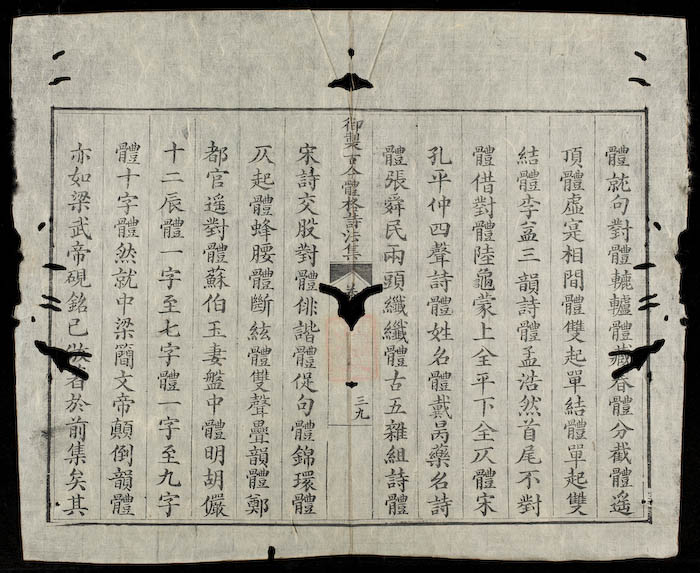 體就句對體轆轤體藏春體分截體遙
頂體虛寔相間體雙起單結體單起雙
結體李益三韻詩體孟浩然首尾不對
體借對體陸龜蒙上全平下全仄體宋
孔平仲四聲詩體姓名體戴昺藥名詩
體張舜民兩頭纖纖體古五雜組詩體
御製古今體格詩法集
三九
宋詩交股對體俳諧體促句體錦環體
仄起體蜂腰體斷絃體雙聲疊韻體鄭
都官遙對體蘇伯玉妻盤中體明胡儼
十二辰體一字至七字體一字至九字
體十字體然就中梁簡文帝顛倒韻體
亦如梁武帝硯銘已著於前集矣其